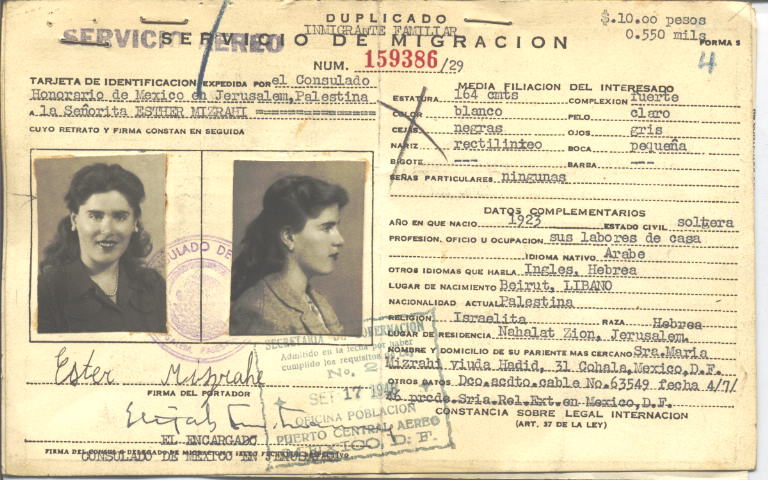 DUPLICADO
INMIGRANTE FAMILIAR
SERVICIO AEREO
SERVICIO DE MIGRACION
$.10.00 pesos
0.550 mils
FORMA 5
4
NUM. 159386/29
TARJETA DE IDENTIFICACION EXPEDIDA POR el Consulado
Honorario de Mexico en Jerusalem, Palestina
A la Señorita ESTHER MIZRAHI
CUYO RETRATO Y FIRMA CONSTAN EN SEGUIDA
CONSULADO DE
Ester Mizrahe
FIRMA DEL PORTADOR
EL ENCARGADO
CONSULADO DE MEXICO EN
SECRETARIA DE GOBERNACION
Admitido en la fecha por haber
cumplido los requisitos de
No. 2
SEP 17 1946
OFICINA POBLACION
PUERTO CENTRAL AEREO
MEXICO, D. F.
MEDIA FILIACION DEL INTERESADO
ESTATURA 164 cmts COMPLEXION fuerte
COLOR blanco PELO claro
CEJAS negras OJOS gris
NARIZ rectilinieo BOCA pequeña
BIGOTE --- BARBA ---
SEÑAS PARTICULARES ningunas
DATOS COMPLEMENTARIOS
AÑO EN QUE NACIO 1923 ESTADO CIVIL soltera
PROFESION, OFICIO U OCUPACION sus labores de casa
IDIOMA NATIVO Arabe
OTROS IDIOMAS QUE HABLA Ingles, Hebrea
LUGAR DE NACIMIENTO Beirut, LIBANO
NACIONALIDAD ACTUAL Palestina
RELIGION Israelita RAZA Hebrea
LUGAR DE RESIDENCIA Nahalat Zion, Jerusalem.
NOMBRE Y DOMICILIO DE SU PARIENTE MAS CERCANO Sra.Maria
Mizrahi viuda Hadid, 31 Cohala, Mexico, D.F.
OTROS DATOS Dco.acdto.cable No.63549 fecha 4/7/
46 prcde.Sria.Rel.Ext.en Mexico,D.F.
CONSTANCIA SOBRE LEGAL INTERNACION
(ART. 37 DE LA LEY)